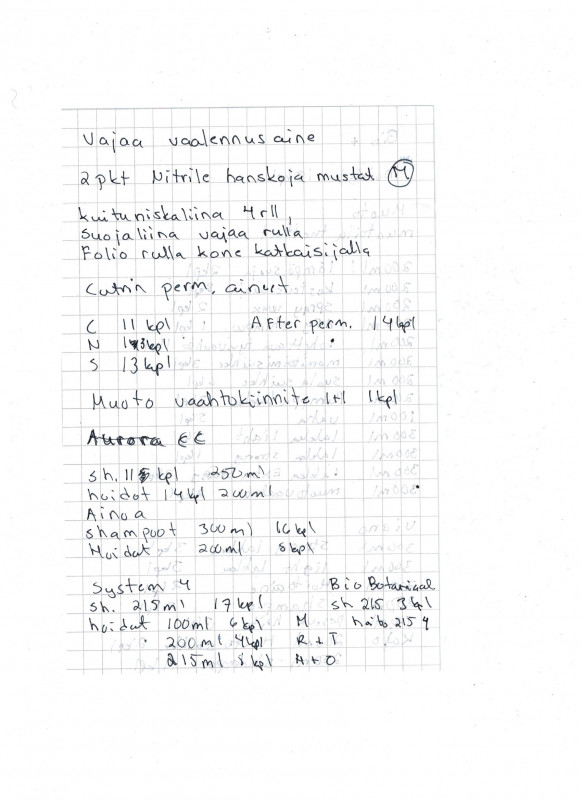 Vajaa vaalennusaine
2 pkt Nitrile hanskoja mustat M
kuituniskaliina 4 rll,
suojaliina vajaa rulla
Folio rulla kone katkaisijalla
Cutrin perm. aineet
C 11 kpl After perm. 14 kpl
N 13 kpl
S 13 kpl
Muoto vaahtokiinnite 1+1 1 kpl
Aurora CC
sh. 11 kpl 250 ml
hoidot 14 kpl 200 ml
Ainoa
shampoot 300 ml 16 kpl
Hoidat 200 ml 8 kpl
System 4 Bio Botanical
sh. 215 ml 17 kpl sh 215 3 kpl
hoidat 100 ml 6 kpl M 215 4
200 ml 4 kpl R + T
215 ml 8 kpl A + O